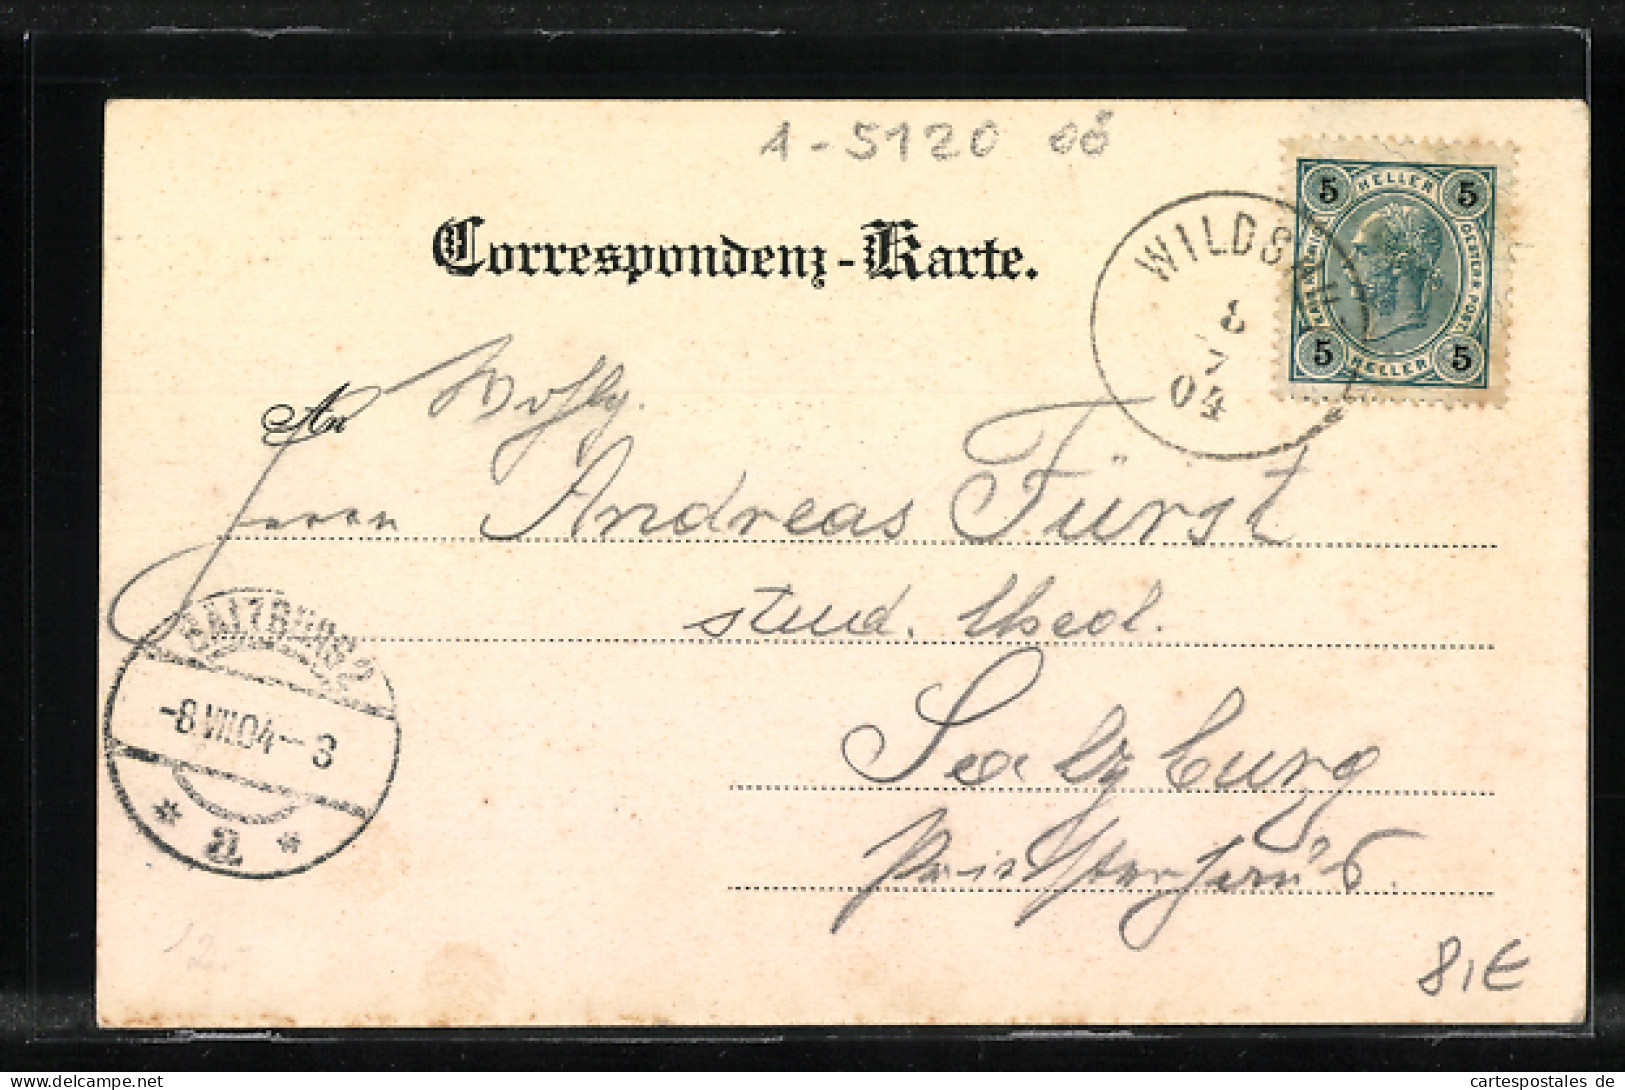 1-5120 OÖ
Correspondenz-Karte.
5 HELLER 5
KAIS. KÖNIGL. OESTERR. POST.
5 HELLER 5
WILDSH
8
7
04
An Wohlg.
Herrn Andreas Fürst
stud. theol.
Salzburg
Priesterhaus.
SALZBURG 2
-8.VII.04--3
* a *
12.-
8,€
Ak-Ansichtskarte
cartespostales de